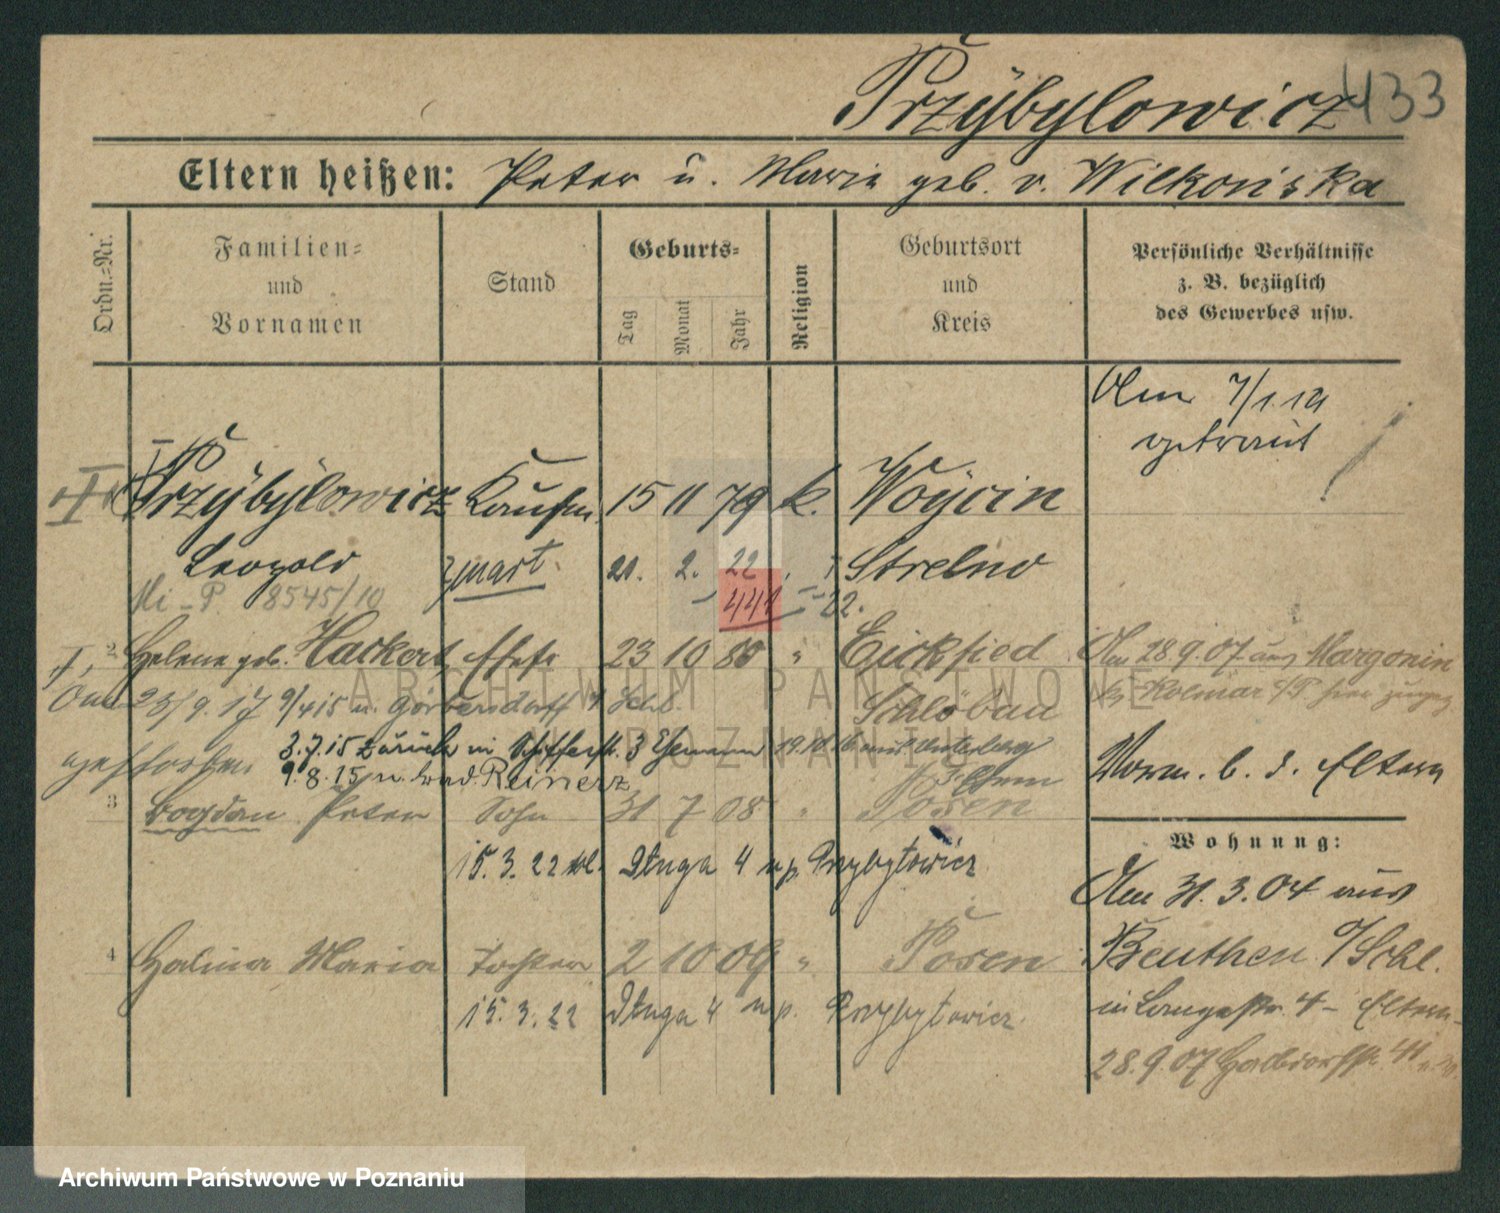 Przÿbÿlowicz 433
Eltern heißen: Peter u. Marie geb. v. Wilkońska
Ordn.-Nr.
Familien-
und
Vornamen
Stand
Geburts-
Tag
Monat
Jahr
Religion
Geburtsort
und
Kreis
Persönliche Verhältnisse
z. B. bezüglich
des Gewerbes usw.
Am 7/1.19
getraut
Przÿbÿlowicz Kaufm. 15 11 79 k. Woÿcin
Leopold zmart. 21. 2. 22 Strelno
Mi-P. 8545/10 441 22.
2 Helene geb. Hackert, Ehefr 23 10 80 " Eickfied Am 28 9.07 aus Margonin
Schlobau Kr Kolmar i/P. hier zugez
23/9.17 9/4 15 n. Görbersdorf
gestorben 3.7.15 zurück
9.8.15 n. Bad Reinerz
Norm. b. d. Eltern
3 Bogdan Peter Sohn 31 7 08 " Posen
Wohnung:
15.3.22 Długa 4 u p. Przybyłowicz
Am 31.3.04 aus
4 Halina Maria Tochter 2 10 09 " Posen
Beuthen O/Schl.
15.3.22 Długa 4 u p. Przybyłowicz
in Langestr. 4 - Eltern
28.9.07
ARCHIWUM PAŃSTWOWE
W POZNANIU
Archiwum Państwowe w Poznaniu